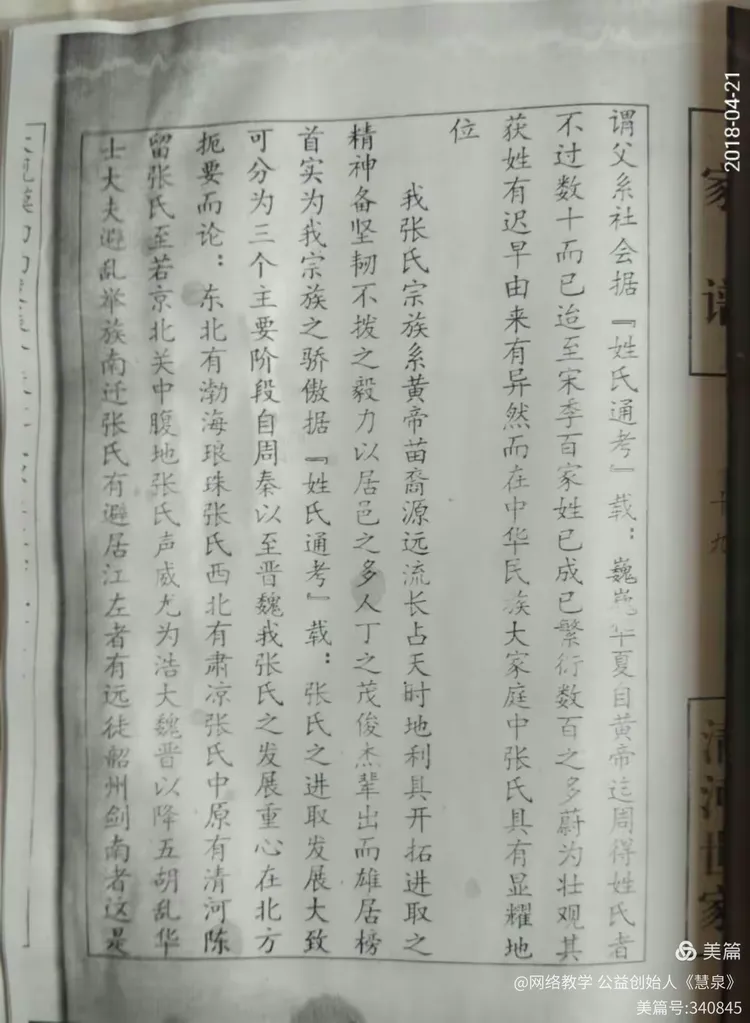 家谱
十九
清河世家
谓父系社会据『姓氏通考』载：巍巍华夏自黄帝迄周得姓氏者
不过数十而已迨至宋季百家姓已成已繁衍数百之多蔚为壮观其
获姓有迟早由来有异然而在中华民族大家庭中张氏具有显耀地
位
我张氏宗族系黄帝苗裔源远流长占天时地利具开拓进取之
精神备坚韧不拨之毅力以居邑之多人丁之茂俊杰辈出而雄居榜
首实为我宗族之骄傲据『姓氏通考』载：张氏之进取发展大致
可分为三个主要阶段自周秦以至晋魏我张氏之发展重心在北方
扼要而论：东北有渤海琅珠张氏西北有肃凉张氏中原有清河陈
留张氏至若京北关中腹地张氏声威尤为浩大魏晋以降五胡乱华
士大夫避乱举族南迁张氏有避居江左者有远徒韶州剑南者这是
2018-04-21
美篇
@网络教学 公益创始人《慧泉》
美篇号:340845